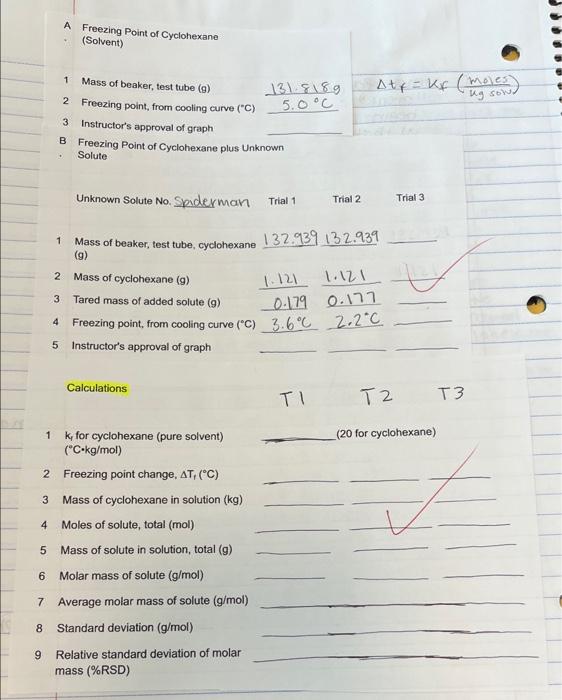 A Freezing Point of Cyclohexane
. (Solvent)
1 Mass of beaker, test tube (g) 131.818g Δtf = Kf (moles / kg solv)
2 Freezing point, from cooling curve (°C) 5.0 °C
3 Instructor's approval of graph
B Freezing Point of Cyclohexane plus Unknown
. Solute
Unknown Solute No. Spiderman Trial 1 Trial 2 Trial 3
1 Mass of beaker, test tube, cyclohexane 132.939 132.939
(g)
2 Mass of cyclohexane (g) 1.121 1.121
3 Tared mass of added solute (g) 0.179 0.177
4 Freezing point, from cooling curve (°C) 3.6°C 2.2°C
5 Instructor's approval of graph
Calculations T1 T2 T3
1 kf for cyclohexane (pure solvent) (20 for cyclohexane)
(°C•kg/mol)
2 Freezing point change, ΔTf (°C)
3 Mass of cyclohexane in solution (kg)
4 Moles of solute, total (mol)
5 Mass of solute in solution, total (g)
6 Molar mass of solute (g/mol)
7 Average molar mass of solute (g/mol)
8 Standard deviation (g/mol)
9 Relative standard deviation of molar
mass (%RSD)